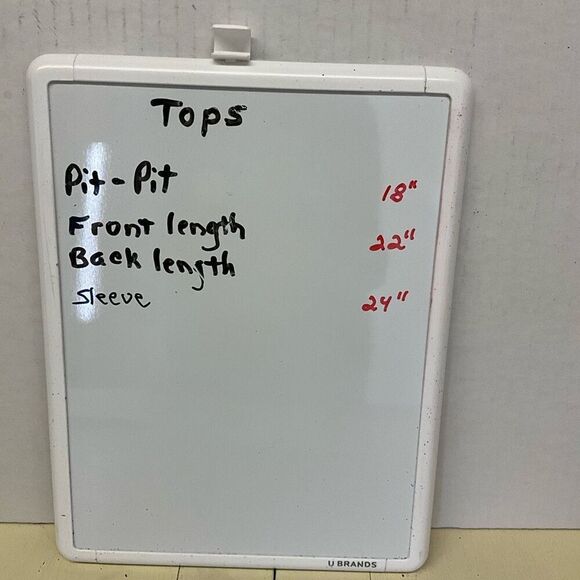 Tops
Pit-Pit 18"
Front length 22"
Back length
Sleeve 24"
U BRANDS